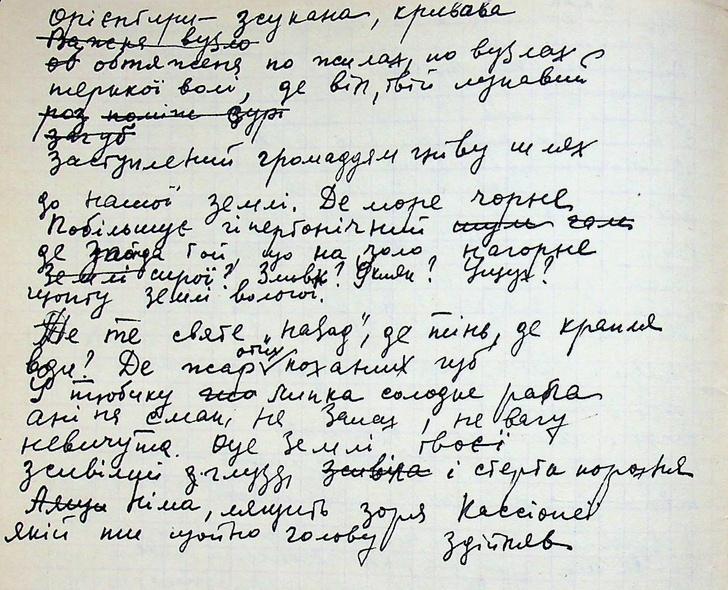 Орієнтири – зсукана, кривава
Важня вузло
об обтяжена по жилах, по вузлах
терпкої волі, де він, твій лукавий
роз
загуб
Заступлений громаддям гніву шлях
до нашої землі. Де море чорне
Побільшує гіпертонічний шум
де зайда той, що на золо нагорне
Землі сирої? Зливи? Якшя? Ущух?
щопту землі вологої.
Де те святе „назад", де тінь, де крапля
води? Де жар отих коханих губ
У тюбику липка солодка рапа
ані на смак, не запах, не вагу
невичутна. Оце землі твоєї
зживілий з глузду зживіла і стерта порожня
німа, лящить зоря Кассіопеї
якій ти щойно голову здійняв